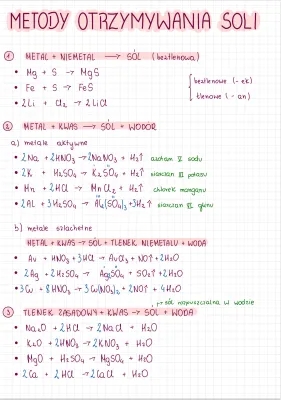 METODY OTRZYMYWANIA SOLI
① METAL + NIEMETAL → SÓL (beztlenowa)
• Mg + S → MgS
• Fe + S → FeS
• 2Li + Cl₂ → 2LiCl
beztlenowe (-ek)
tlenowe (-an)
② METAL + KWAS → SÓL + WODÓR
a) metale aktywne
• 2Na + 2HNO₃ → 2NaNO₃ + H₂↑ azotan V sodu
• 2K + H₂SO₄ → K₂SO₄ + H₂↑ siarczan VI potasu
• Mn + 2HCl → MnCl₂ + H₂↑ chlorek manganu
• 2Al + 3H₂SO₄ → Al₂(SO₄)₃ + 3H₂↑ siarczan VI glinu
b) metale szlachetne
METAL + KWAS → SÓL + TLENEK NIEMETALU + WODA
• Au + HNO₃ + 3HCl → AuCl₃ + NO↑ + 2H₂O
• 2Ag + 2H₂SO₄ → Ag₂SO₄ + SO₂↑ + 2H₂O
• 3Cu + 8HNO₃ → 3Cu(NO₃)₂ + 2NO↑ + 4H₂O
→ sól rozpuszczalna w wodzie
③ TLENEK ZASADOWY + KWAS → SÓL + WODA
• Na₂O + 2HCl → 2NaCl + H₂O
• K₂O + 2HNO₃ → 2KNO₃ + H₂O
• MgO + H₂SO₄ → MgSO₄ + H₂O